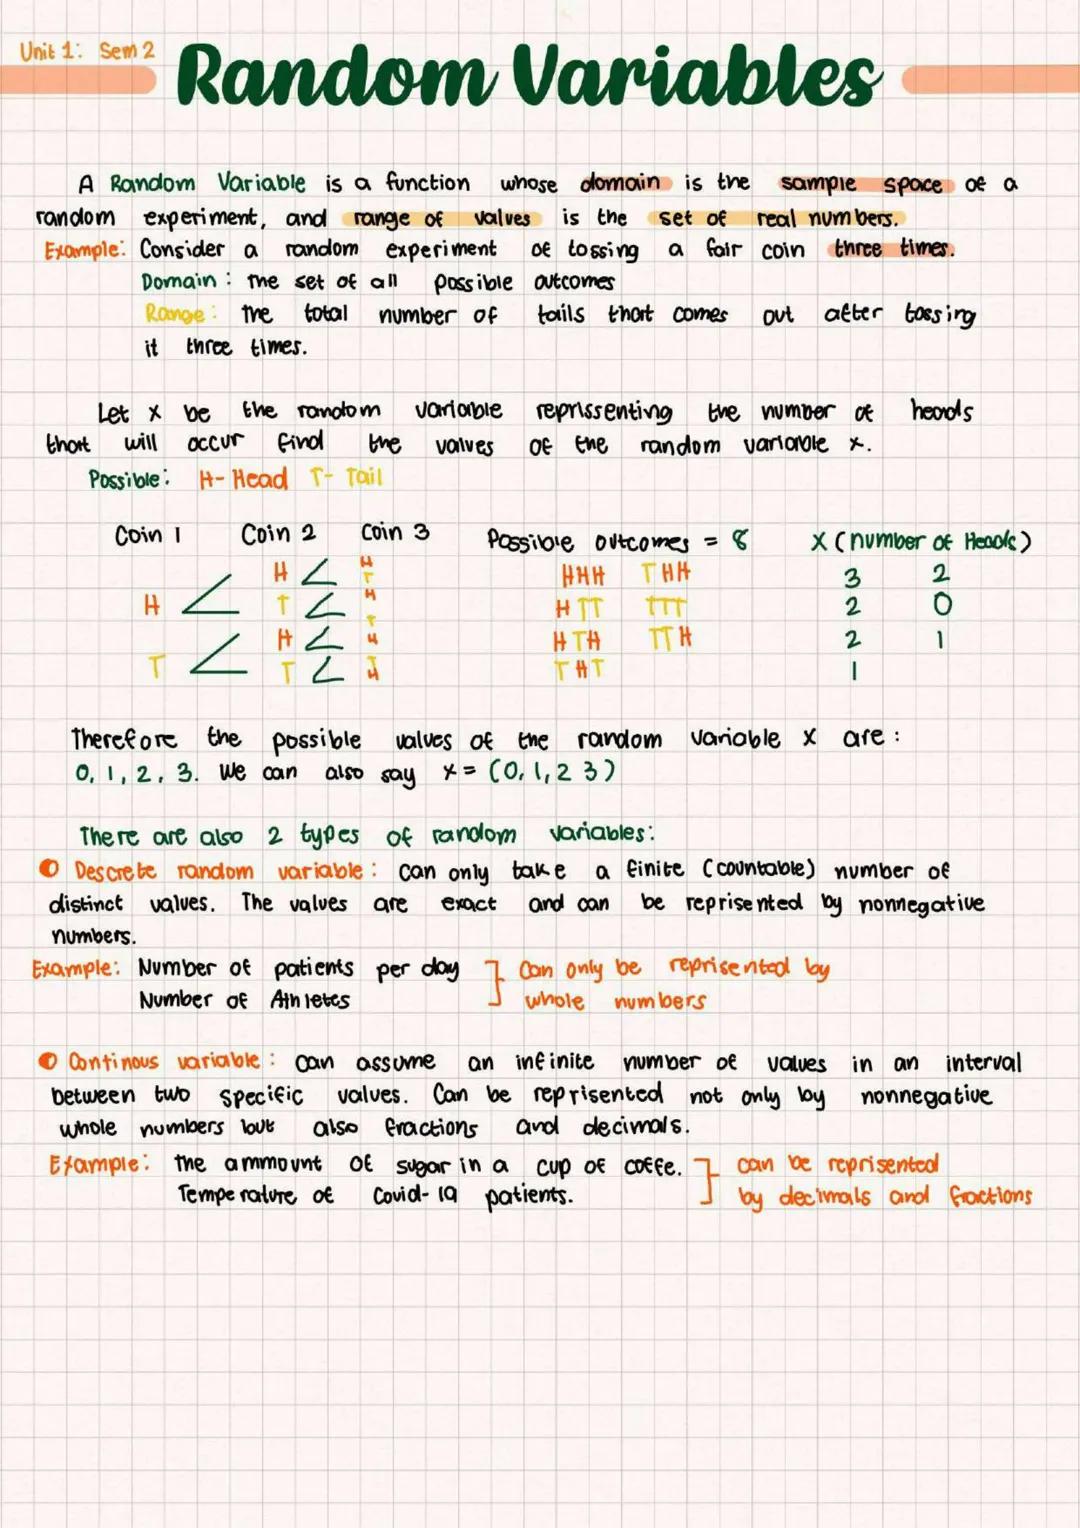 Unit 1: Sem 2
Random Variables
A Random Variable is a function whose domain is the sample space of a
random experiment, and range of values is the set of real numbers.
Example: Consider a random experiment of tossing a fair coin three times.
Domain: The set of all possible outcomes
Range: The total number of tails that comes out after tossing
it three times.
Let x be the random variable reprissenting the number of heads
that will occur find the values of the random variable x.
Possible: H- Head T- Tail
Coin 1 Coin 2 Coin 3 Possible outcomes = 8 X (number of Heads)
H < H HHH THH 3 2
T
H < T < H HTT TTT 2 0
T
H < H HTH TTH 2 1
T < T < T THT 1
H
Therefore the possible values of the random variable x are:
0, 1, 2, 3. We can also say x = (0, 1, 2 3)
There are also 2 types of random variables:
Descrete random variable: can only take a finite (countable) number of
distinct values. The values are exact and can be reprisented by nonnegative
numbers.
Example: Number of patients per day Can only be reprisented by
Number of Athletes whole numbers
Continous variable: can assume an infinite number of values in an interval
between two specific values. Can be reprisented not only by nonnegative
whole numbers but also fractions and decimals.
Example: The ammount of sugar in a cup of coffe. can be reprisented
Temperature of Covid-19 patients. by decimals and fractions